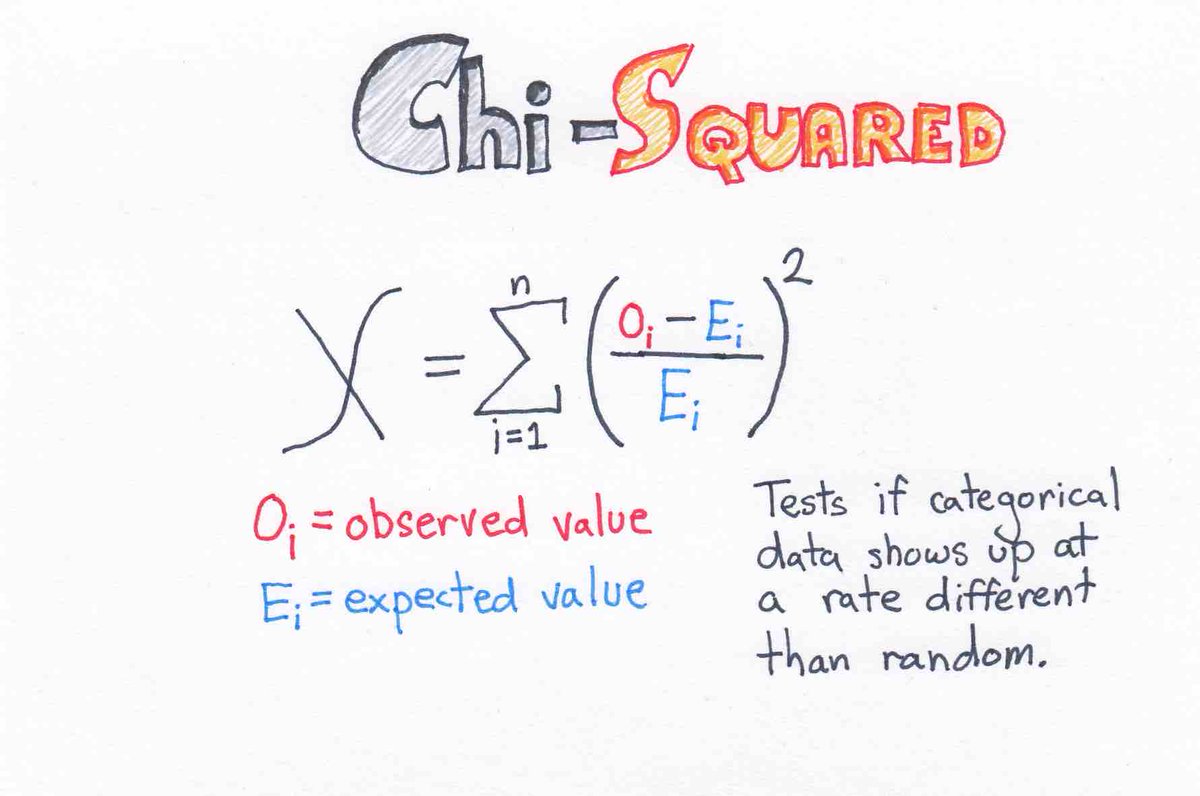 Chi-SQUARED
χ = \sum_{i=1}^{n} \left( \frac{O_i - E_i}{E_i} \right)^2
O_i = observed value
E_i = expected value
Tests if categorical
data shows up at
a rate different
than random.